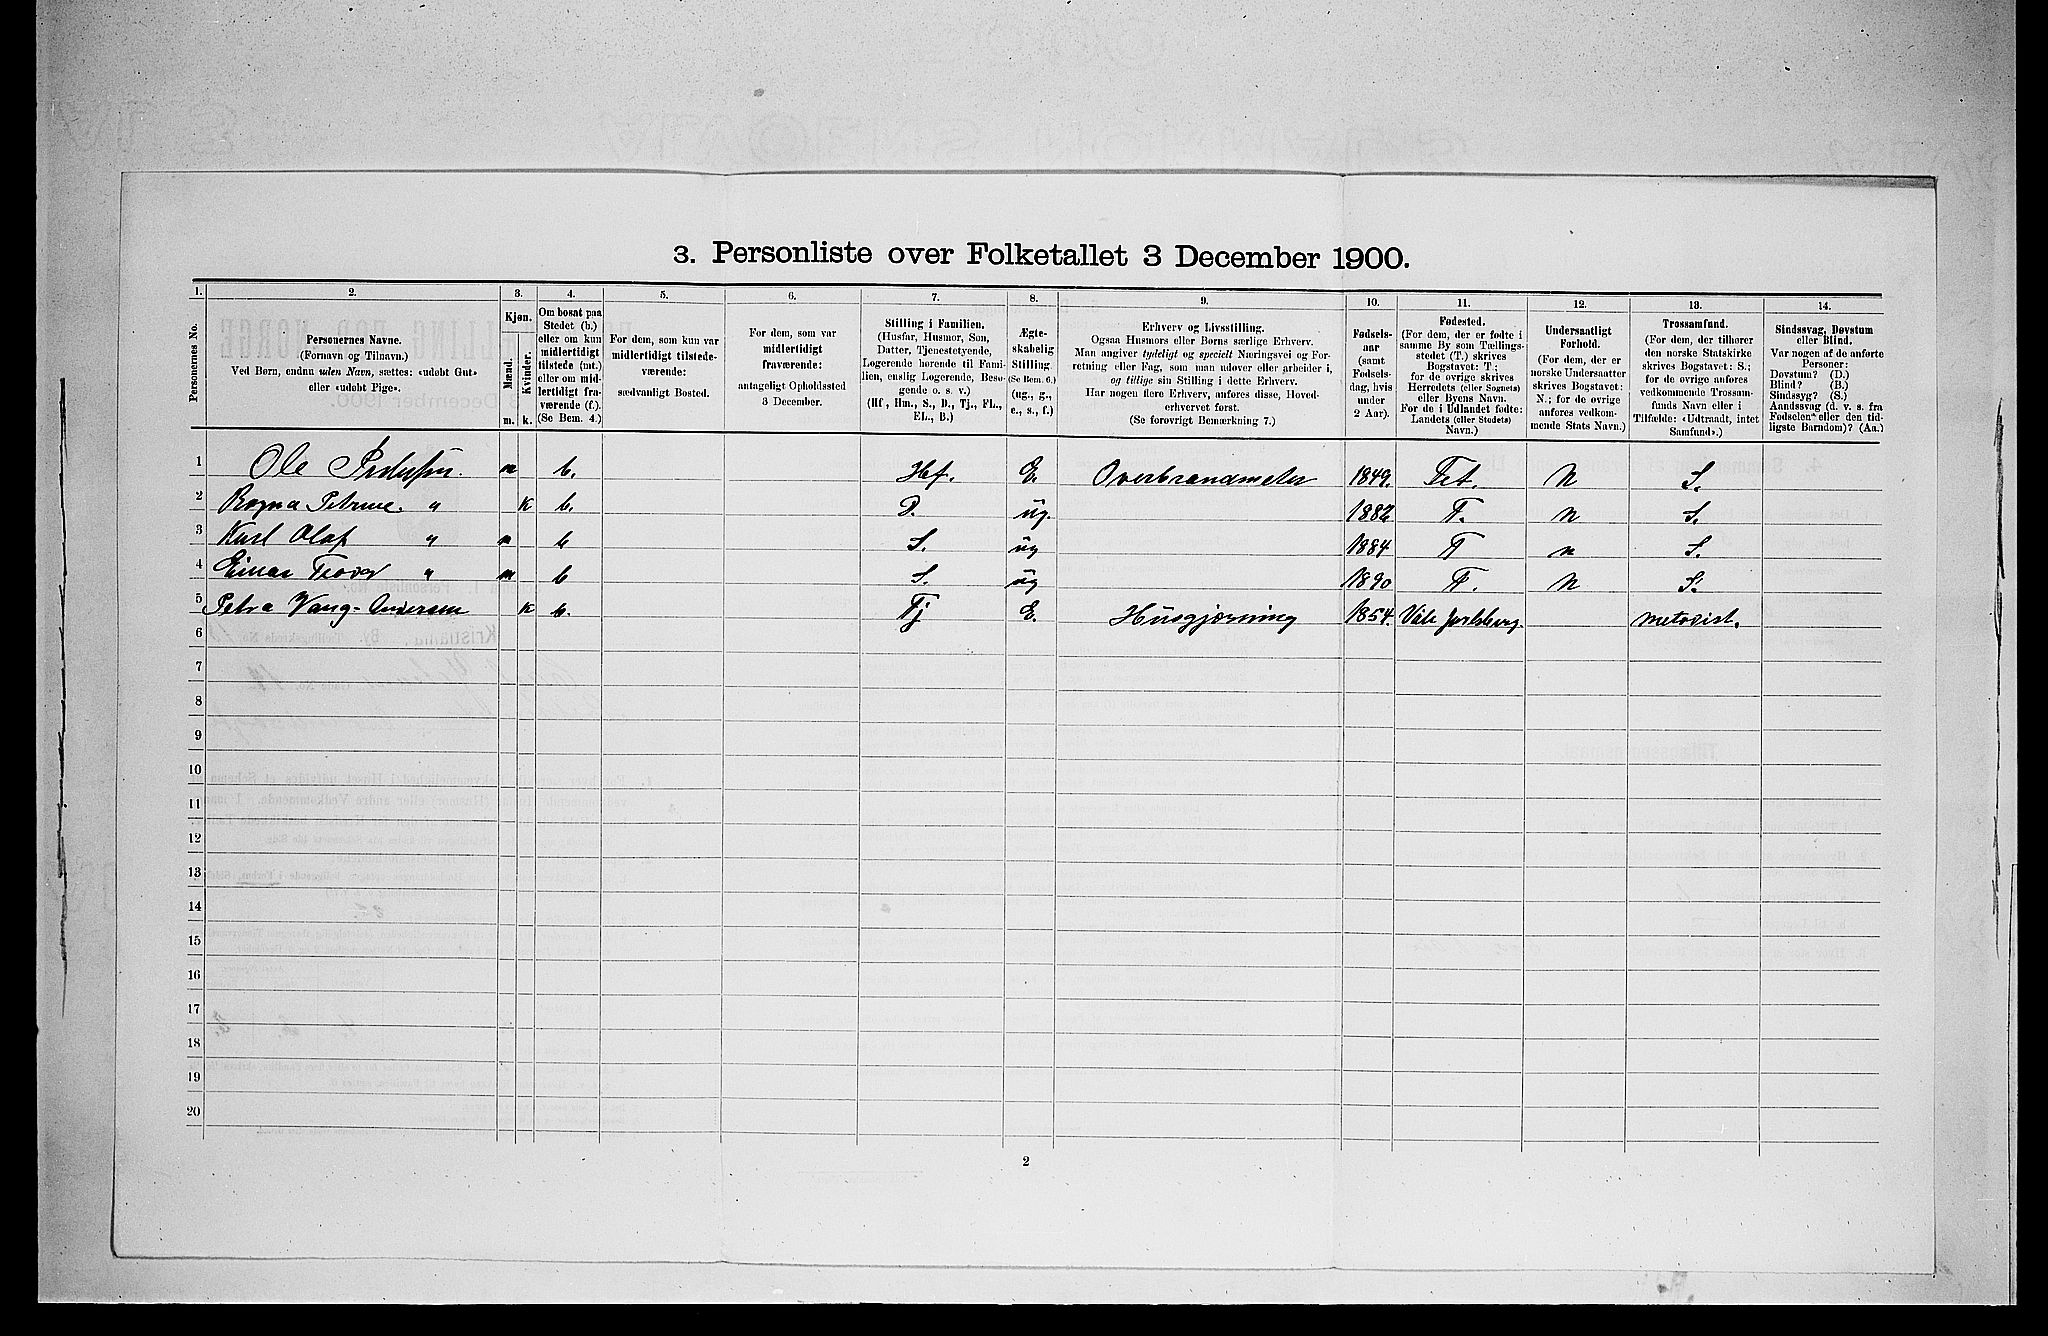 3. Personliste over Folketallet 3 December 1900.
1. 2. 3. 4. 5. 6. 7. 8. 9. 10. 11. 12. 13. 14.
Personernes No.
Personernes Navne.
(Fornavn og Tilnavn.)
Ved Børn, endnu uden Navn, sættes: «udøbt Gut»
eller «udøbt Pige».
Kjøn.
Mænd. Kvinder.
m. k.
Om bosat paa
Stedet (b.)
eller om kun
midlertidigt
tilstede (mt.)
eller om mid-
lertidigt fra-
værende (f.).
(Se Bem. 4.)
For dem, som kun var
midlertidigt tilstede-
værende:
sædvanligt Bosted.
For dem, som var
midlertidigt
fraværende:
antageligt Opholdssted
3 December.
Stilling i Familien.
(Husfar, Husmor, Søn,
Datter, Tjenestetyende,
Logerende hørende til Fami-
lien, enslig Logerende, Besø-
gende o. s. v.)
(Hf., Hm., S., D., Tj., FL.,
EL., B.)
Ægte-
skabelig
Stilling.
(Se Bem. 6.)
(ug., g.,
e., s., f.)
Erhverv og Livsstilling.
Ogsaa Husmors eller Børns særlige Erhverv.
Man angiver tydeligt og specielt Næringsvei og For-
retning eller Fag, som man udøver eller arbeider i,
og tillige sin Stilling i dette Erhverv.
Har nogen flere Erhverv, anføres disse, Hoved-
erhvervet først.
(Se forøvrigt Bemærkning 7.)
Fødsels-
aar
(samt
Fødsels-
dag, hvis
under
2 Aar).
Fødested.
(For dem, der er fødte i
samme By som Tællings-
stedet (T.) skrives
Bogstavet: T;
for de øvrige skrives
Herredets (eller Sognets)
eller Byens Navn.
For de i Udlandet fødte:
Landets (eller Stedets)
Navn.)
Undersaatligt
Forhold.
(For dem, der er
norske Undersaatter
skrives Bogstavet:
N.; for de øvrige
anføres vedkom-
mende Stats Navn.)
Trossamfund.
(For dem, der tilhører
den norske Statskirke
skrives Bogstavet: S.;
for de øvrige anføres
vedkommende Trossam-
funds Navn eller i
Tilfælde: «Udtraadt, intet
Samfund».)
Sindssvag, Døvstum
eller Blind.
Var nogen af de anførte
Personer:
Døvstum? (D.)
Blind? (B.)
Sindssyg? (S.)
Aandssvag (d. v. s. fra
Fødselen eller den tid-
ligste Barndom)? (Aa.)
1 Ole Pedersen. m b. Hf. E. Overbrandmester 1849. Fet. N S.
2 Ragna Petrine. " k b. D. ug. 1882 T. N S.
3 Karl Olaf " m b S. ug 1884 T n S.
4 Einar " m b S. ug 1890 T. N S.
5 Petra Vang-Andersen k b. Tj E. Husgjerning 1854. Jarlsberg. Metodist.
6
7
8
9
10
11
12
13
14
15
16
17
18
19
20
2